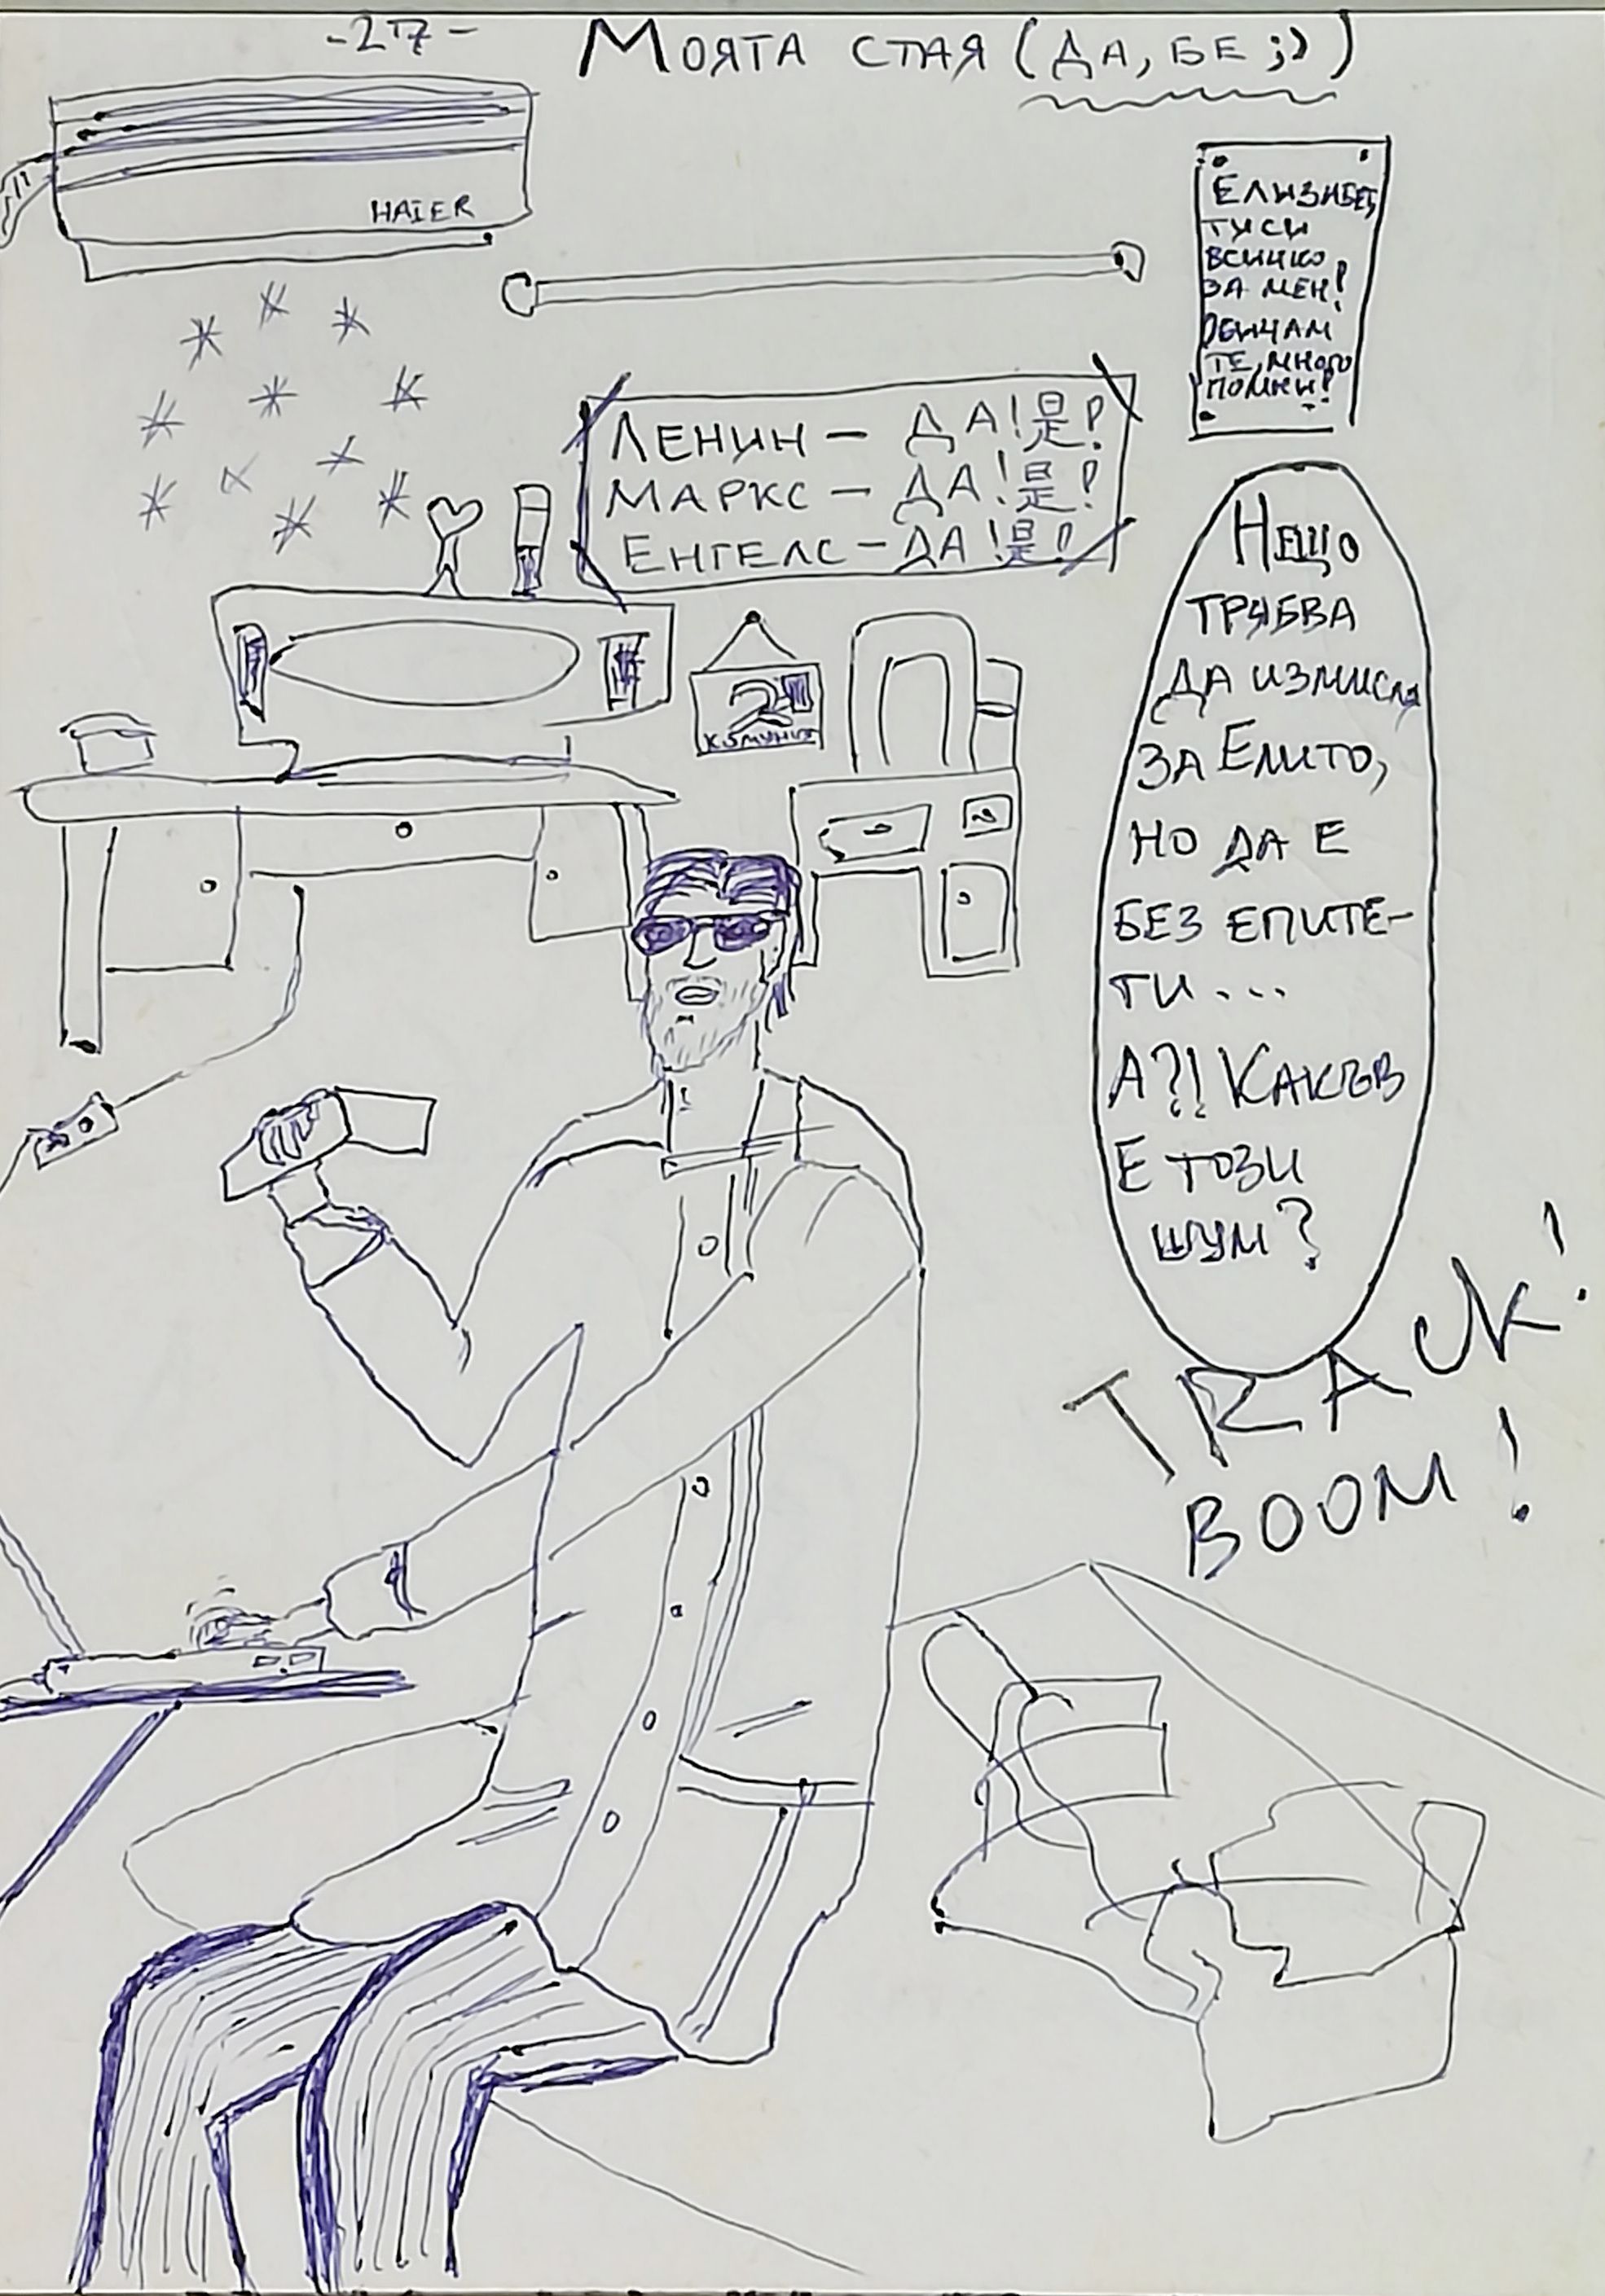 -27-
МОЯТА СТАЯ (ДА, БЕ ;))
HAIER
ЕЛИЗАБЕТ,
ТИ СИ
ВСИЧКО
ЗА МЕН!
ОБИЧАМ
ТЕ, МНОГО
ПОМНИ!
ЛЕНИН – ДА!是!
МАРКС – ДА!是!
ЕНГЕЛС – ДА!是!
2
НЕЩО
ТРЯБВА
ДА ИЗМИСЛЯ
ЗА ЕЛИТО,
НО ДА Е
БЕЗ ЕПИТЕ-
ТИ...
А?! КАКЪВ
Е ТОЗИ
ШУМ?
TRAK!
BOOM!